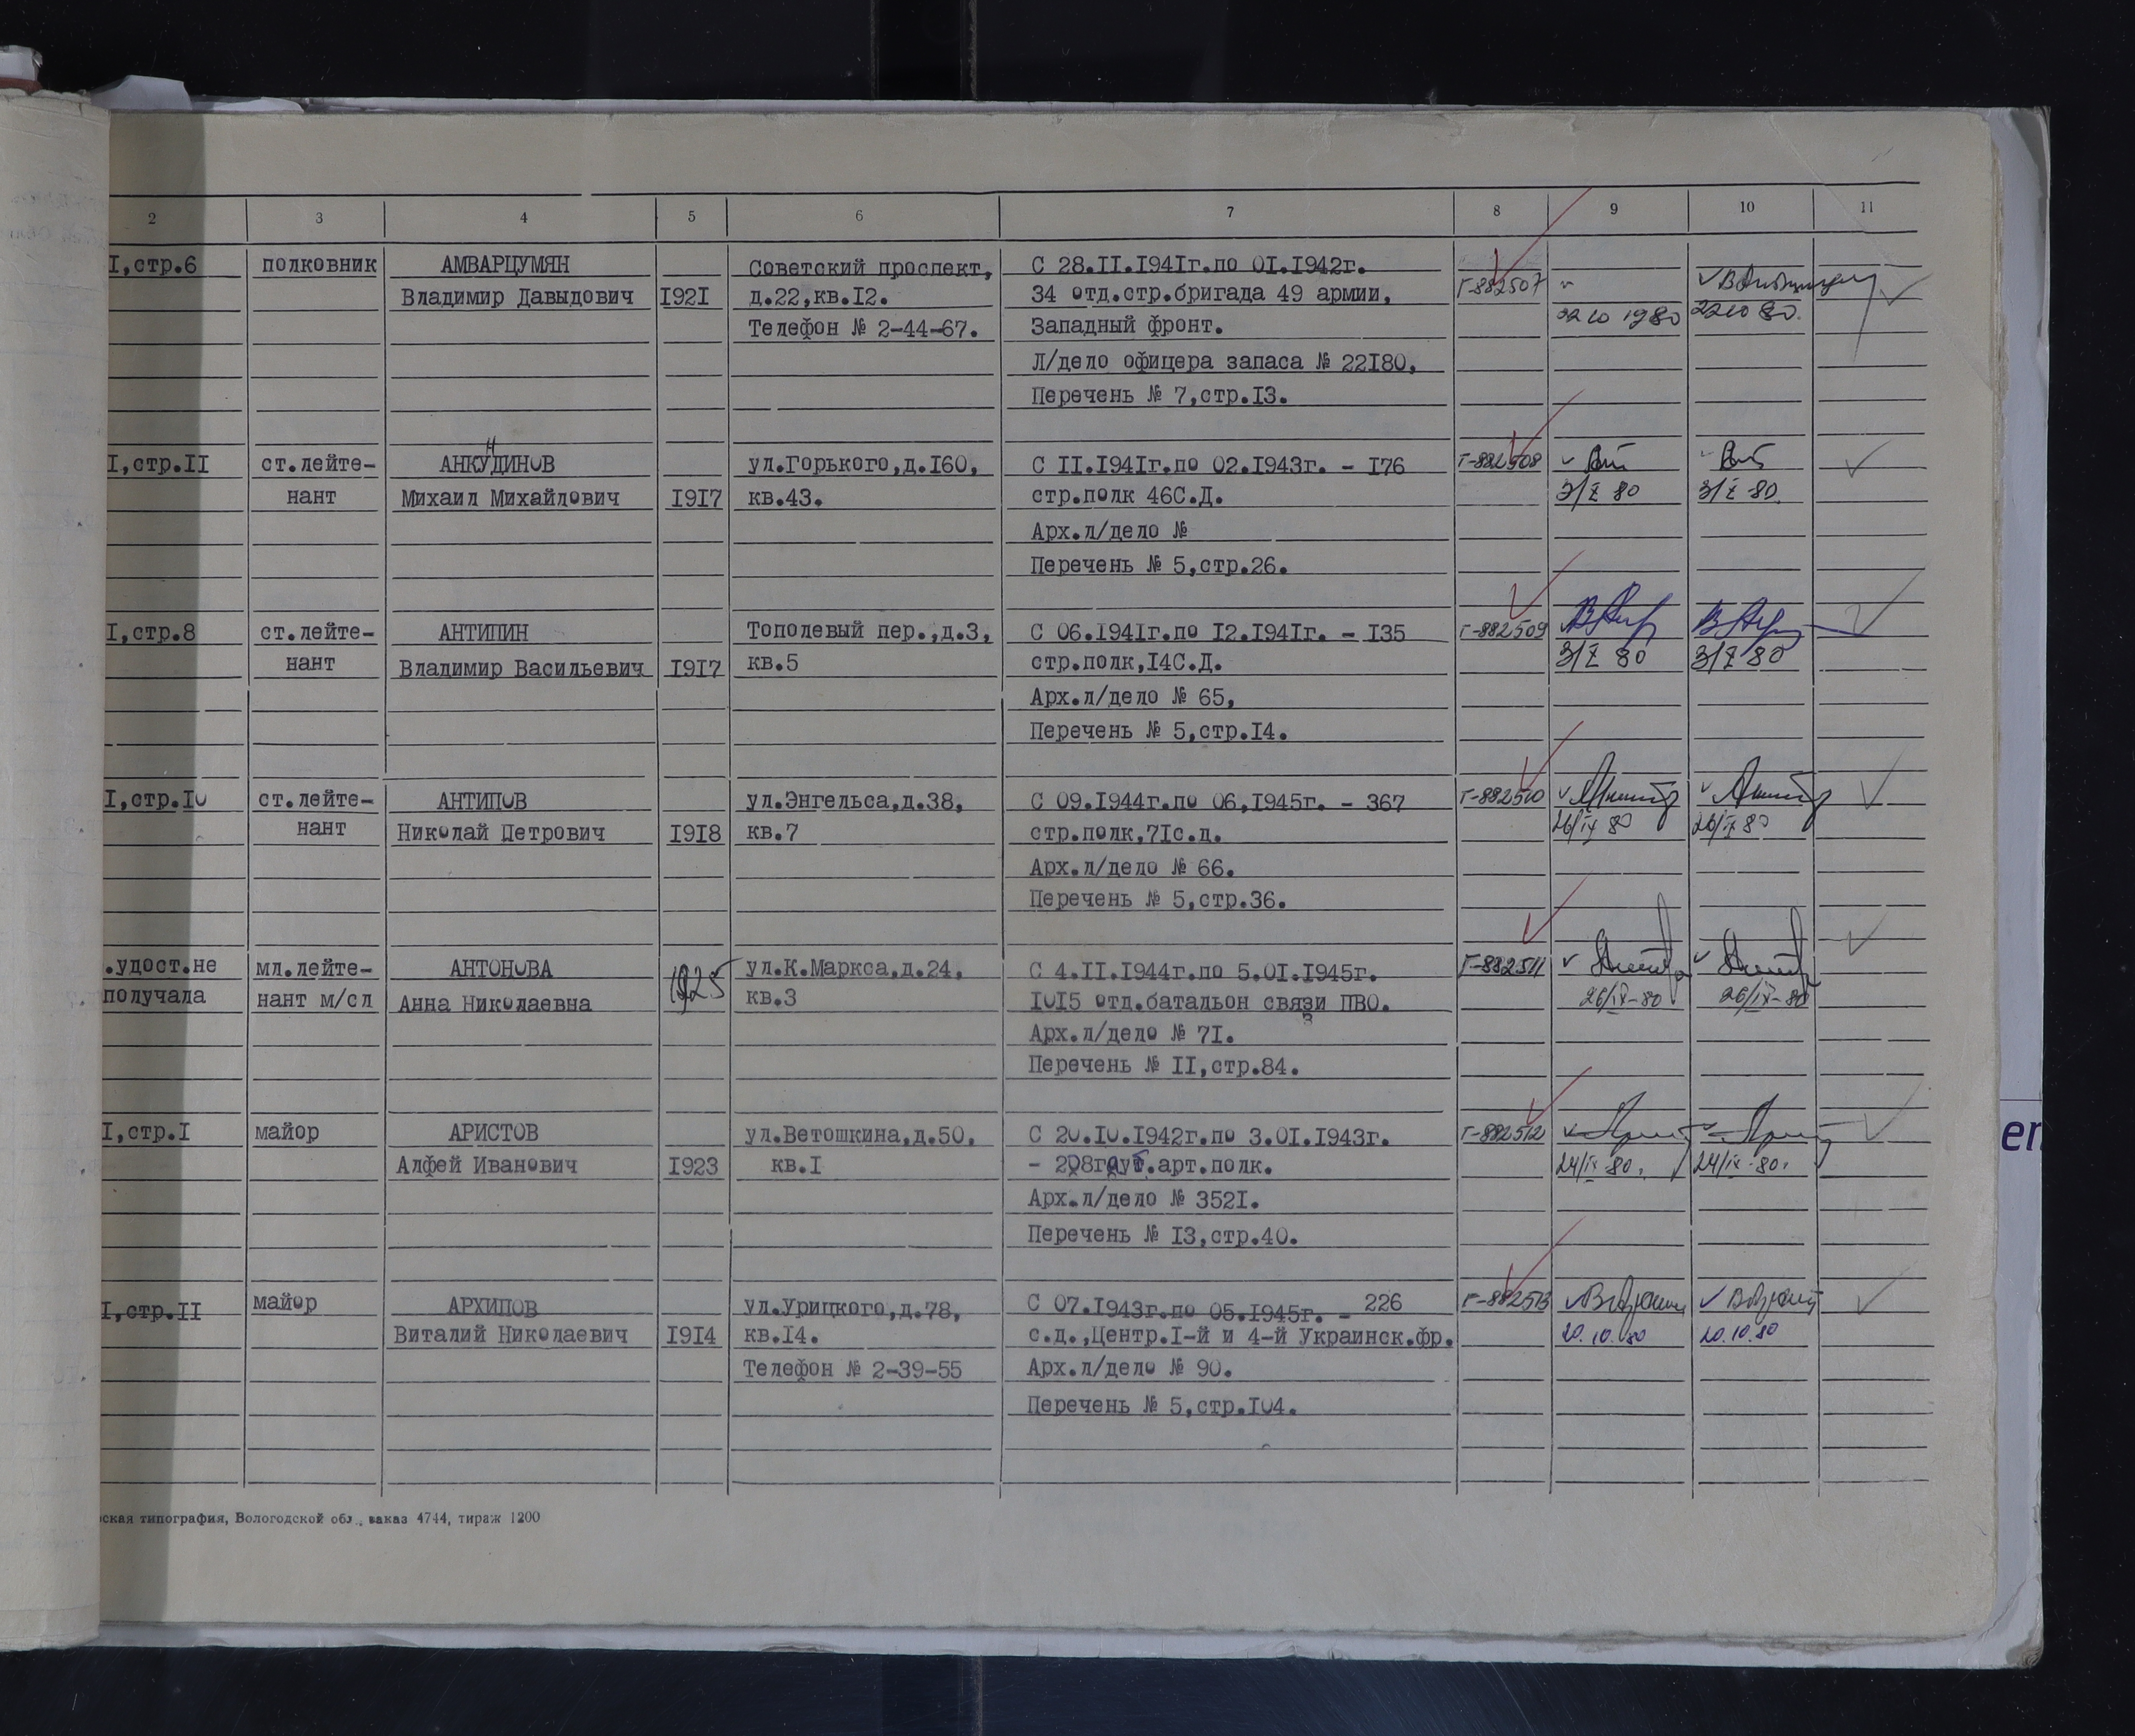 2 3 4 5 6 7 8 9 10 11
I,стр.6 полковник АМВАРЦУМЯН Советский проспект, С 28.II.194Iг.по 0I.I942г.
Владимир Давыдович I92I д.22,кв.I2. 34 отд.стр.бригада 49 армии, Г-882507
Телефон № 2-44-67. Западный фронт. 22 10 1980 22 10 80.
Л/дело офицера запаса № 22I80,
Перечень № 7,стр.I3.
I,стр.II ст.лейте- АНКУДИНОВ ул.Горького,д.I60, С II.I94Iг.по 02.I943г. - I76 Г-882508
нант Михаил Михайлович I9I7 кв.43. стр.полк 46С.Д. 3/X 80 3/X 80.
Арх.л/дело №
Перечень № 5,стр.26.
I,стр.8 ст.лейте- АНТИПИН Тополевый пер.,д.3, С 06.I94Iг.по I2.I94Iг. - I35 Г-882509
нант Владимир Васильевич I9I7 кв.5 стр.полк,I4С.Д. 3/X 80 3/X 80
Арх.л/дело № 65,
Перечень № 5,стр.I4.
I,стр.I0 ст.лейте- АНТИПОВ ул.Энгельса,д.38, С 09.I944г.по 06,I945г. - 367 Г-882510
нант Николай Петрович I9I8 кв.7 стр.полк,7Iс.д. 26/IX 80 26/IX 80
Арх.л/дело № 66.
Перечень № 5,стр.36.
.удост.не мл.лейте- АНТОНОВА 1925 ул.К.Маркса,д.24, С 4.II.I944г.по 5.0I.I945г. Г-882511
получала нант м/сл Анна Николаевна кв.3 I0I5 отд.батальон связи ПВО. 26/IX-80 26/IX-80
Арх.л/дело № 7I.
Перечень № II,стр.84.
I,стр.I майор АРИСТОВ ул.Ветошкина,д.50, С 20.I0.I942г.по 3.0I.I943г. Г-882512
Алфей Иванович I923 кв.I - 208гауб.арт.полк. 24/IX-80. 24/IX-80.
Арх.л/дело № 352I.
Перечень № I3,стр.40.
I,стр.II майор АРХИПОВ ул.Урицкого,д.78, С 07.I943г.по 05.I945г. - 226 Г-882513
Виталий Николаевич I9I4 кв.I4. с.д.,Центр.I-й и 4-й Украинск.фр. 20.10.80 20.10.80
Телефон № 2-39-55 Арх.л/дело № 90.
Перечень № 5,стр.I04.
ская типография, Вологодской обл., заказ 4744, тираж 1200